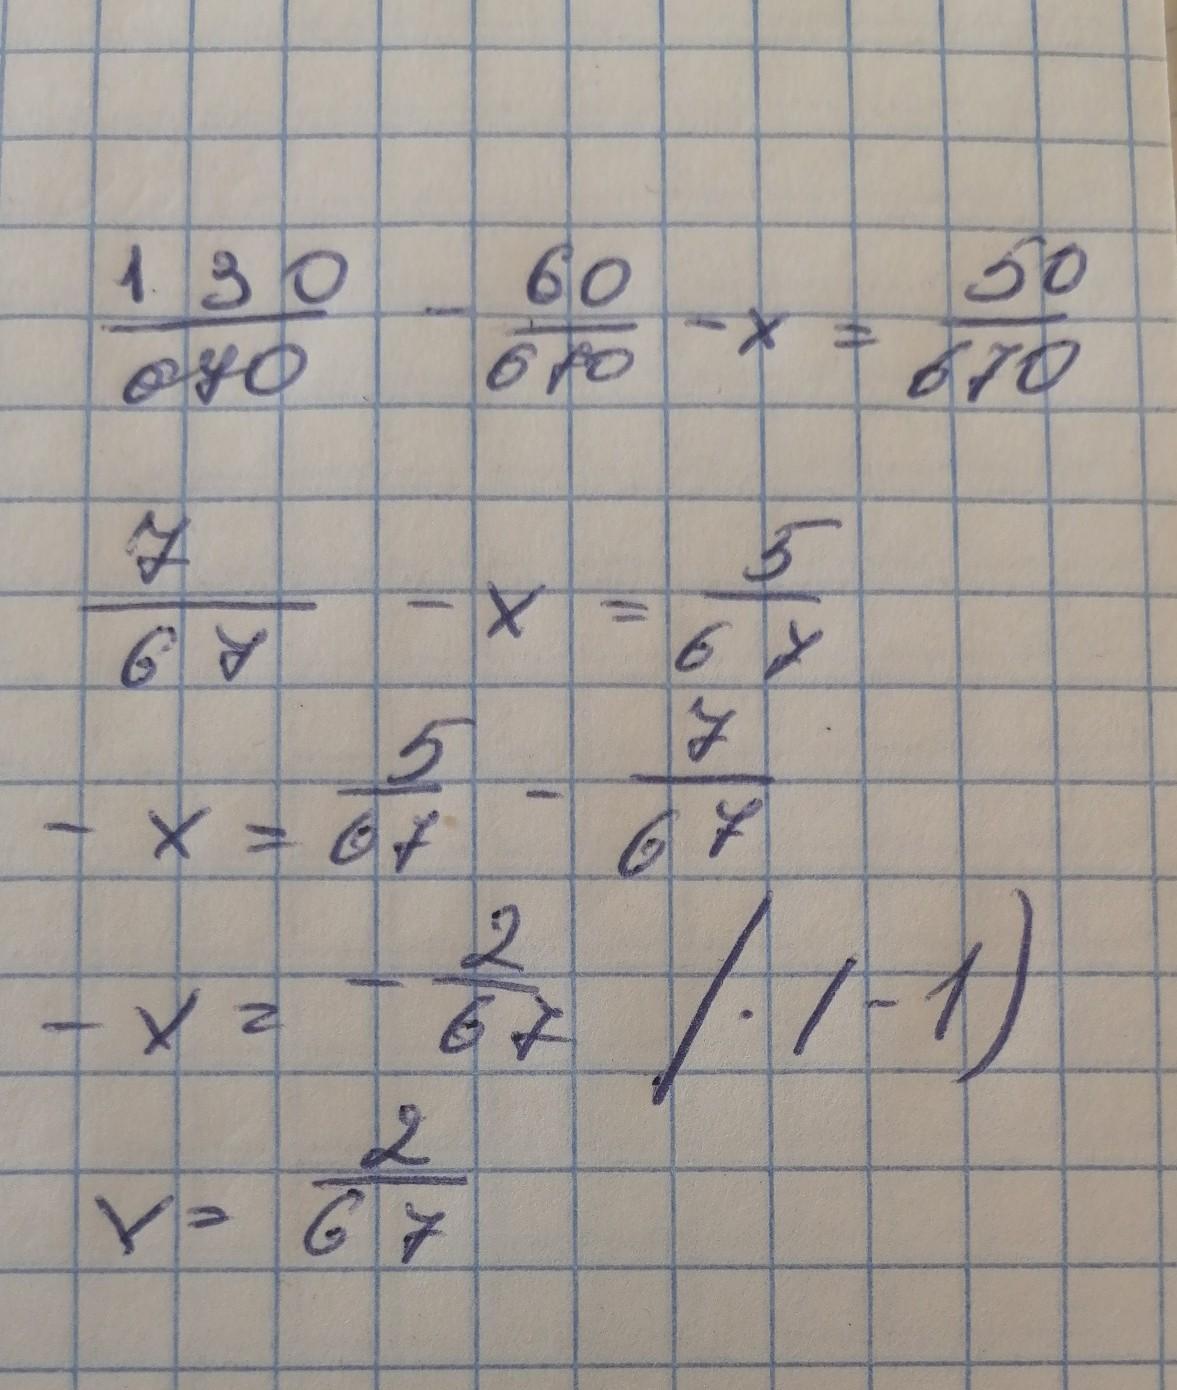 130/670 - 60/670 - x = 50/670
7/67 - x = 5/67
- x = 5/67 - 7/67
- x = - 2/67 / · (-1)
x = 2/67